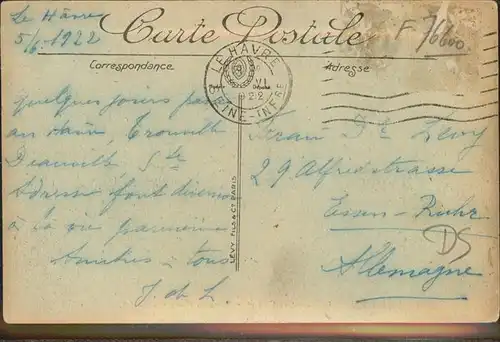 Le Havre
5/6. 1922
Carte Postale
F 76600
Correspondance
Adresse
LE HAVRE
SEINE-INFRE
VI
22
quelques jours par
au Havre, Trouville
Deauville Ste
Adresse font
à la vie parisienne
Amitiés à tous
J. de L.
LEVY FILS & Cie PARIS
Frau Dr Levy
29 Alfredstrasse
Essen-Ruhr
DS
Allemagne